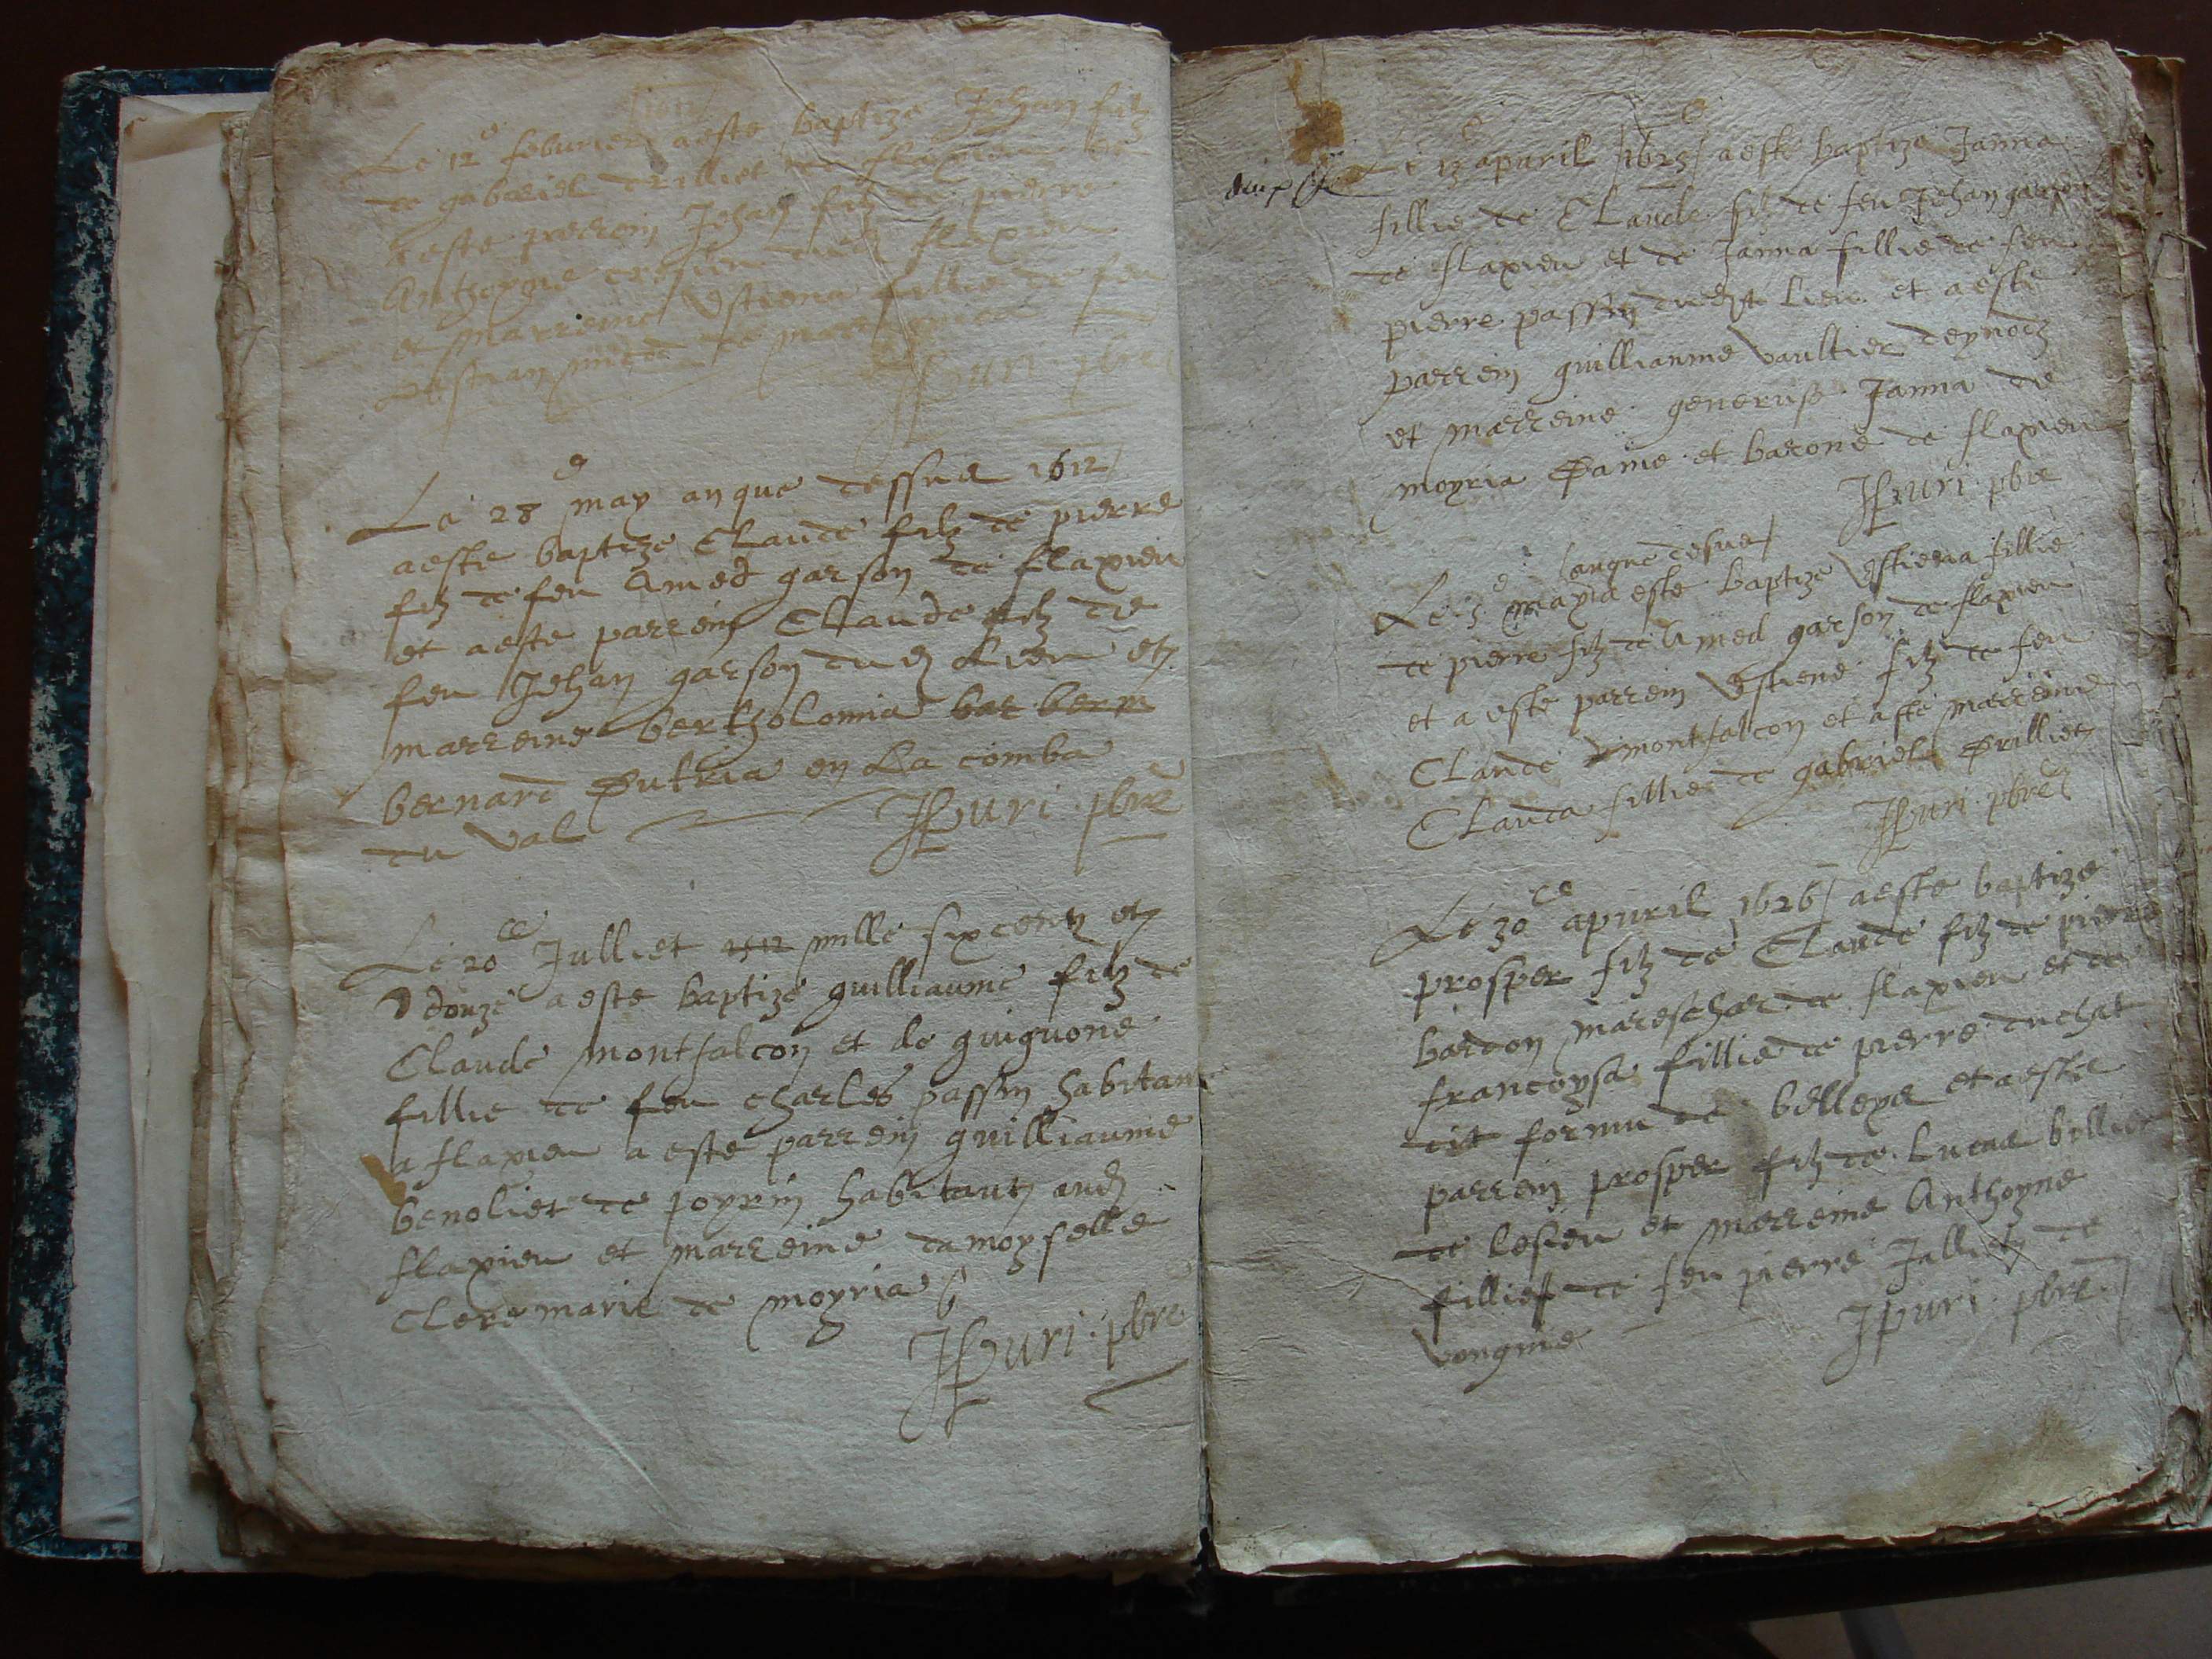 Le 12e febvrier aeste baptize Jehan filz
de gabriel drilliet de flaxieu
a este parrein Jehan filz de pierre
Anthoyne dud flaxieu
et marreine Estiena fillie de feu
JPuri pbre
Le 28e may an que dessus 1612
aeste baptize Claude filz de pierre
filz de feu Amed garson de flaxieu
et aeste parrein Claude filz de
feu Jehan garson dud lieu et
marreine bertholomia bar berni
bernard Dutria en la comba
du val
JPuri pbre
Le 20e Julliet 1512 mille sixcentz et
douze aeste baptize guilliaume filz de
Claude montfalcon et de guiguone
fillie de feu charles passin habitant
a flaxieu a este parrein guilliaume
benoliet de poyrin habitant aud
flaxieu et marreine damoyselle
Clere marie de moyria
JPuri pbre
Le 13e apvril 1625 aeste baptize Janna
fillie de Claude filz de feu Jehan garson
de flaxieu et de Janna fillie de feu
pierre passin dudit lieu et aeste
parrein guilliaume vaultier deynod
et marreine generuse Janna de
moyria Dame et barone de flaxieu
JPuri pbre
anque desus
Le 5e may a este baptize Estiena fillie
de pierre filz de Amed garson de flaxieu
et a este parrein Estiene filz de feu
Claude montfalcon et aste marreine
Clauda fillie de gabriel Drilliet
JPuri pbre
Le 30e apvril 1626 aeste baptize
prosper filz de Claude filz de pierre
bardon mareschar de flaxieu et de
francoysa fillie de pierre duchat
dit fornu de belleys et aeste
parrein prosper filz de Lucas billiet
de losieu et marreine Anthoyne
fillie de feu pierre Jalliet de
vongnie
JPuri pbre